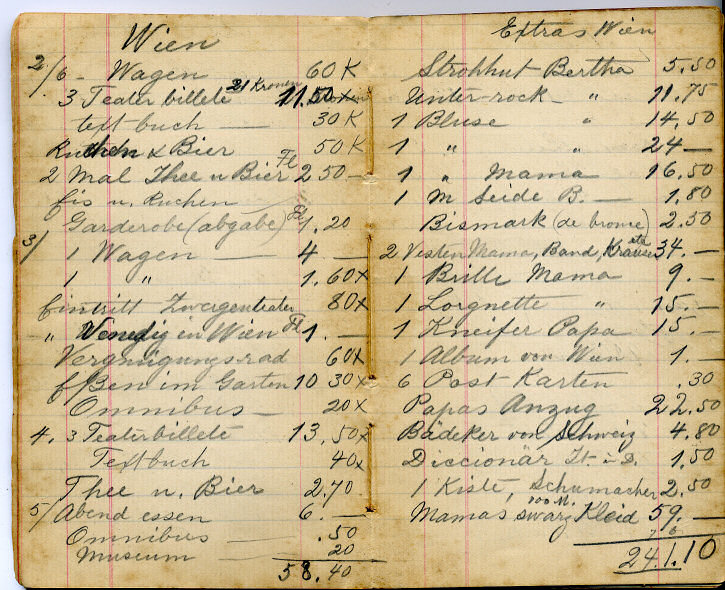 Wien
2/6 - Wagen 60 K
3 Teater billete 21 Kronen 11.50
textbuch — 30 K
Kuchen & Bier 50 K
2 Mal Thee u Bier Fl 2 50 —
Eis u. Kuchen
Garderobe (abgabe) Fl 1.20
3/ 1 Wagen — 4 —
1 " 1.60 x
Eintritt Zwergenteater 80 x
" Venedig in Wien Fl 1. —
Vergnügungsrad 60 x
Essen im Garten 10 30 x
Omnibus — 20 x
4. 3 Teaterbillete 13.50 x
Textbuch 40 x
Thee u. Bier 2,70
5/ Abend essen 6. —
Omnibus — .50
Museum 20
58.40
Extras Wien
Strohhut Bertha 5.50
Unter-rock - " 11.75
1 Bluse " 14.50
1 " " 24 —
1 " Mama 16.50
1 m Seide B. — 1.80
Bismark (de bronce) 2.50
2 Westen Mama, Band, Krause etc 34. —
1 Brille Mama 9. —
1 Lorgnette " 15. —
1 Kneifer Papa 15. —
1 Album von Wien 1. —
6 Post Karten .30
Papas Anzug 22.50
Bädeker von Schweiz 4.80
Diccionär It. i. D. 1.50
1 Kiste, Schumacher 2.50
Mamas swarz Kleid 100 M. 59. —
241.10